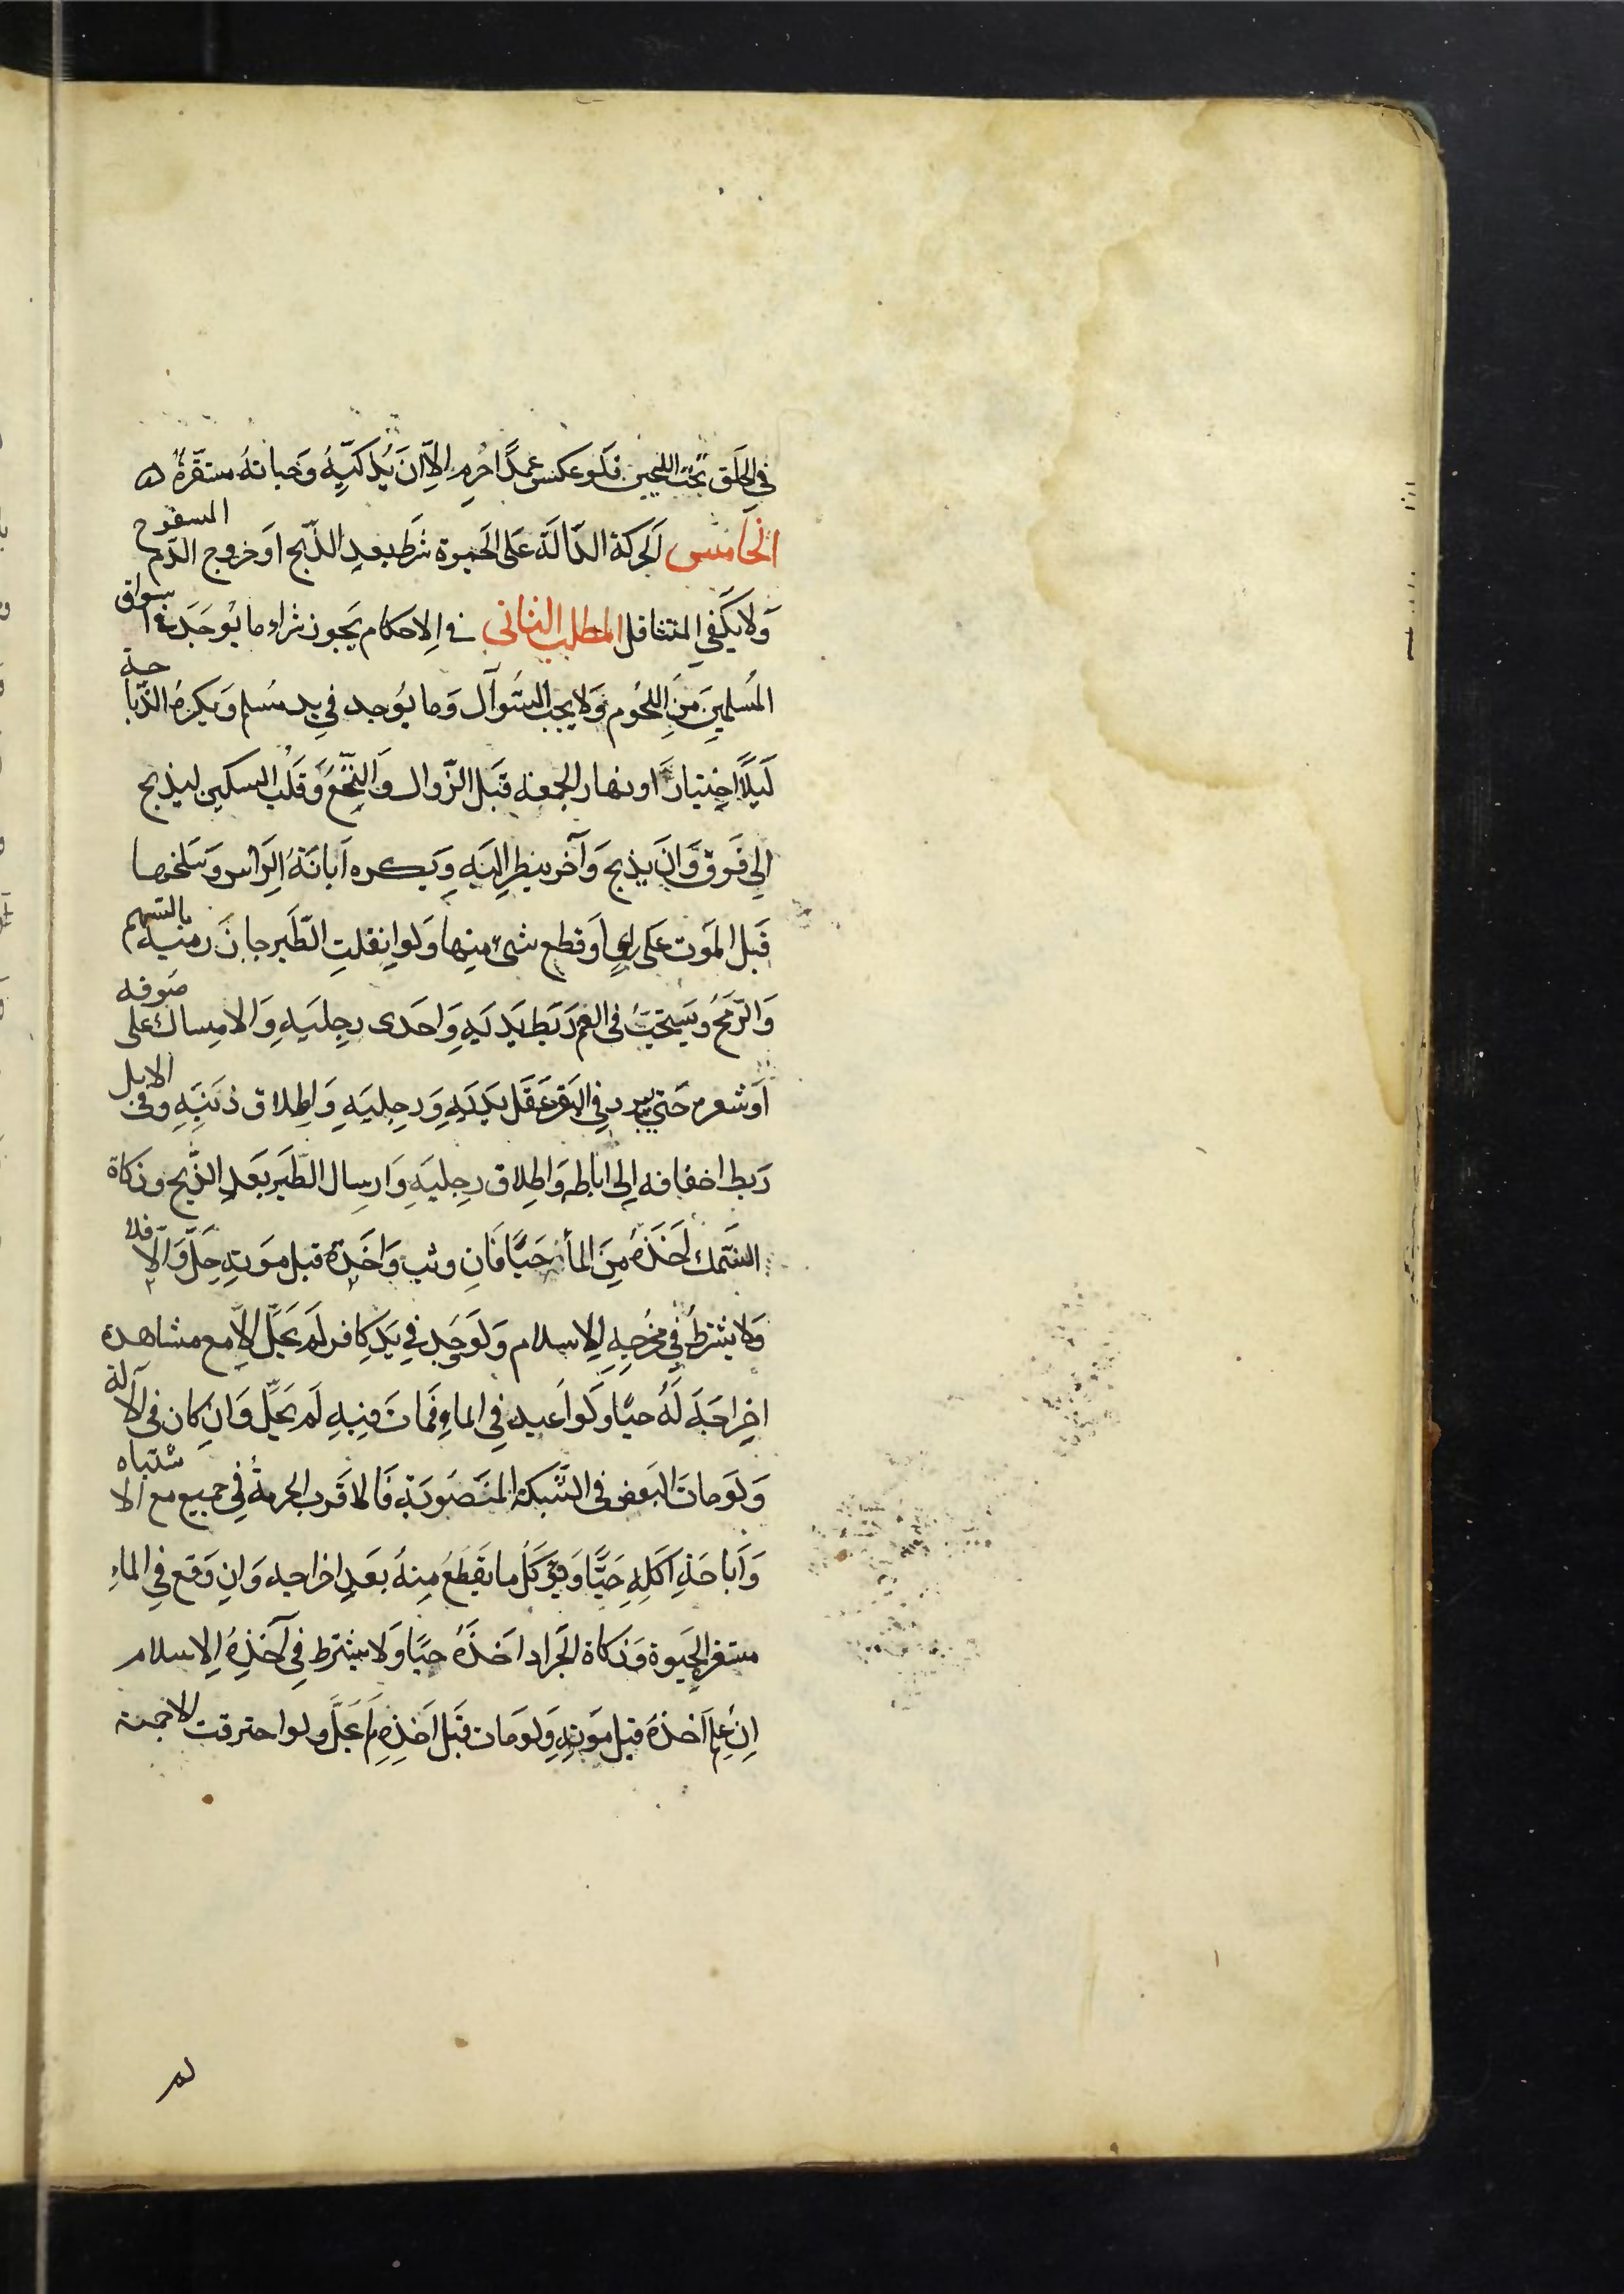 في الحلق تحت اللحيين فلو عكس عمدًا حرم الّا ان يذكيه وحياته مستقرة
الخامس الحركة الدالة على الحيوة شرط بعد الذبح او خروج الدم المسفوح
ولا يكفي المتثاقل المطلب الثاني في الاحكام يجوز شراء ما يوجد في اسواق
المسلمين من اللحوم ولا يجب السؤال وما يوجد في يد مسلم ويكره الذباحة
ليلًا اختيارًا او نهار الجمعة قبل الزوال والنخع وقلب السكين ليذبح
الى فوق وان يذبح وآخر ينظر اليه ويكره ابانة الراس وسلخها
قبل الموت على راي او قطع شيء منها ولو انفلت الطير جاز رميه بالسهم
والرمح ويستحب في الغنم ربط يديه واحدى رجليه والامساك على صوفه
او شعره حتى يبرد وفي البقر عقل يديه ورجليه واطلاق ذنبه وفي الابل
ربط اخفافه الى اباطه واطلاق رجليه وارسال الطير بعد الذبح وذكاة
السمك اخذه من الماء حيًا فان وثب واخذه قبل موته حلّ والّا فلا
ولا يشترط في مخرجه الاسلام ولو وجد في يد كافر لم يحلّ الّا مع مشاهدة
اخراجه له حيًا ولو اعيد في الماء فمات فيه لم يحلّ وان كان في الآلة
ولو مات البعض في الشبكة المنصوبة فالاقرب الحرمة في جميع مع الاشتباه
واباحة اكله حيًا ويؤكل ما يقطع منه بعد اخراجه وان وقع في الماء
مستقر الحيوة وذكاة الجراد اخذه حيًا ولا يشترط في آخذه الاسلام
ان علم اخذه قبل موته ولو مات قبل اخذه لم يحلّ ولو احترقت الاجمة
لم